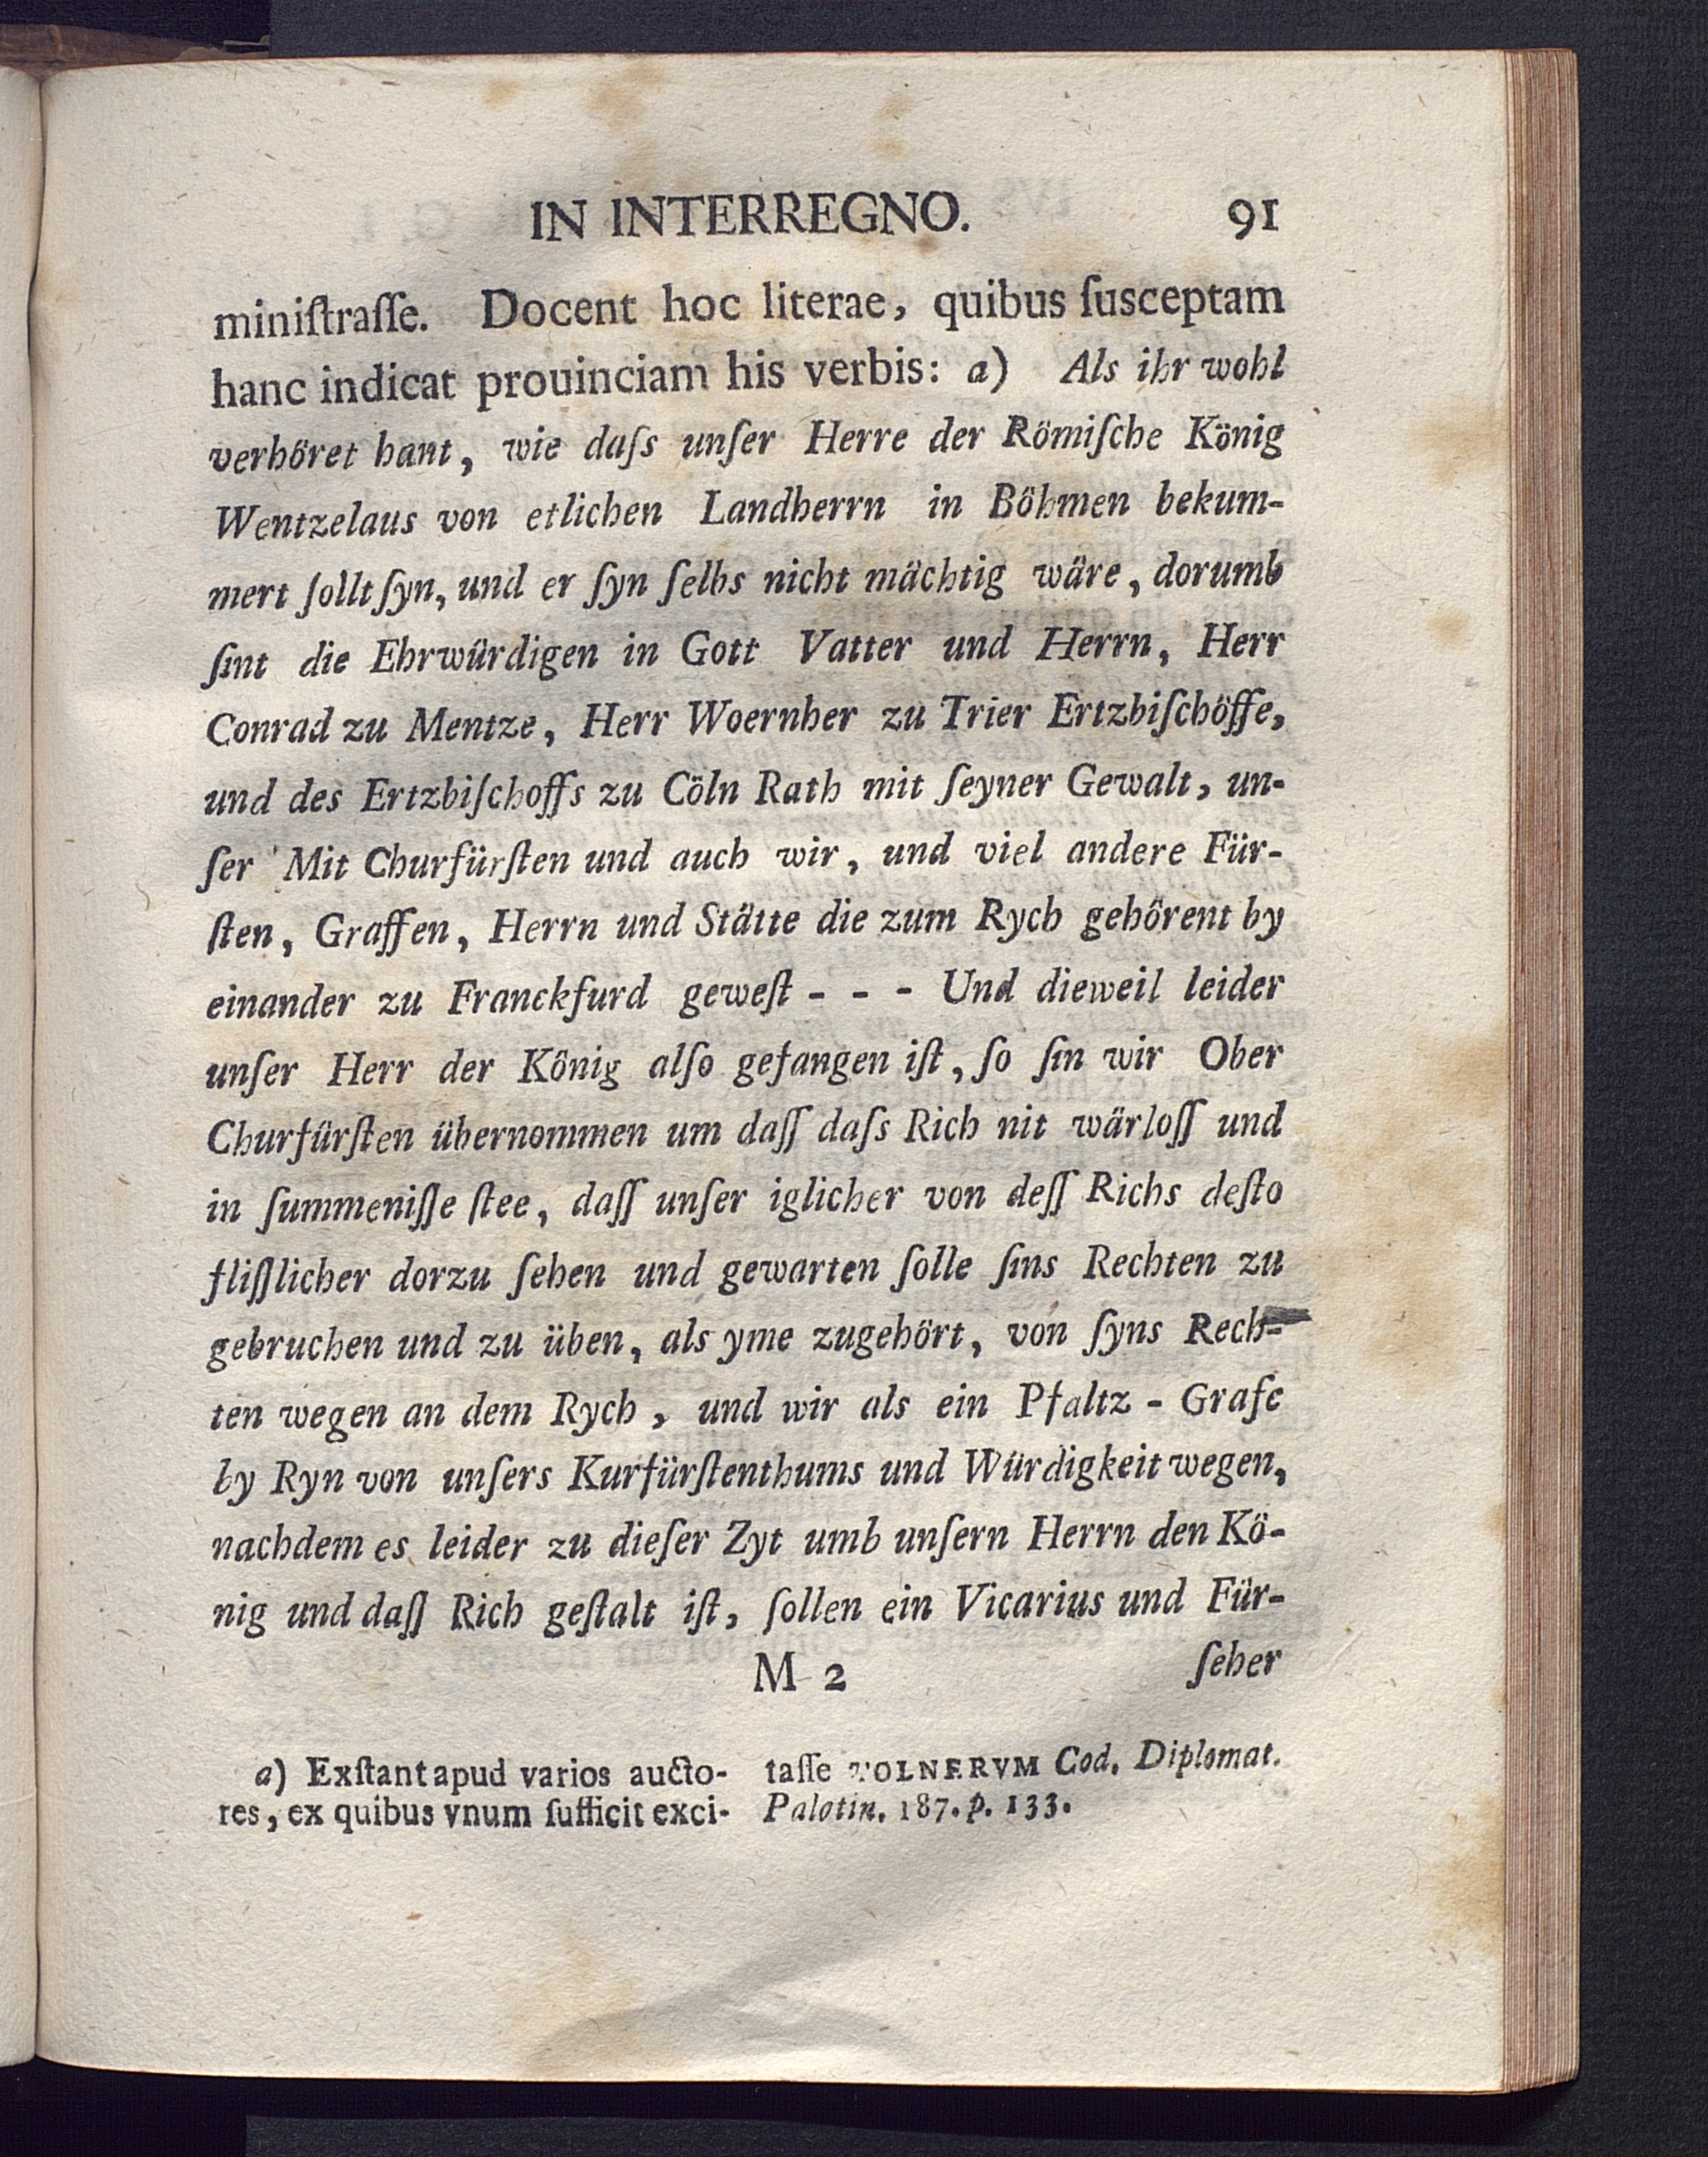 IN INTERREGNO. 91
miniſtraſſe. Docent hoc literae, quibus ſusceptam
hanc indicat prouinciam his verbis: a) Als ihr wohl
verhöret hant, wie daſs unſer Herre der Römiſche König
Wentzelaus von etlichen Landherrn in Böhmen bekum-
mert ſollt ſyn, und er ſyn ſelbs nicht mächtig wäre, dorumb
ſint die Ehrwürdigen in Gott Vatter und Herrn, Herr
Conrad zu Mentze, Herr Woernher zu Trier Ertzbiſchöffe,
und des Ertzbiſchoffs zu Cöln Rath mit ſeyner Gewalt, un-
ſer Mit Churfürſten und auch wir, und viel andere Für-
ſten, Graffen, Herrn und Stätte die zum Rych gehörent by
einander zu Franckfurd geweſt - - - Und dieweil leider
unſer Herr der König alſo gefangen iſt, ſo ſin wir Ober
Churfürſten übernommen um daſſ daſs Rich nit wärloſſ und
in ſummeniſſe ſtee, daſſ unſer iglicher von deſſ Richs deſto
fliſſlicher dorzu ſehen und gewarten ſolle ſins Rechten zu
gebruchen und zu üben, als yme zugehört, von ſyns Rech-
ten wegen an dem Rych, und wir als ein Pfaltz - Grafe
by Ryn von unſers Kurfürſtenthums und Würdigkeit wegen,
nachdem es leider zu dieſer Zyt umb unſern Herrn den Kö-
nig und daſſ Rich geſtalt iſt, ſollen ein Vicarius und Für-
M 2 ſeher
a) Exſtant apud varios aucto-
res, ex quibus vnum ſufficit exci-
taſſe TOLNERVM Cod. Diplomat.
Palotin. 187. p. 133.